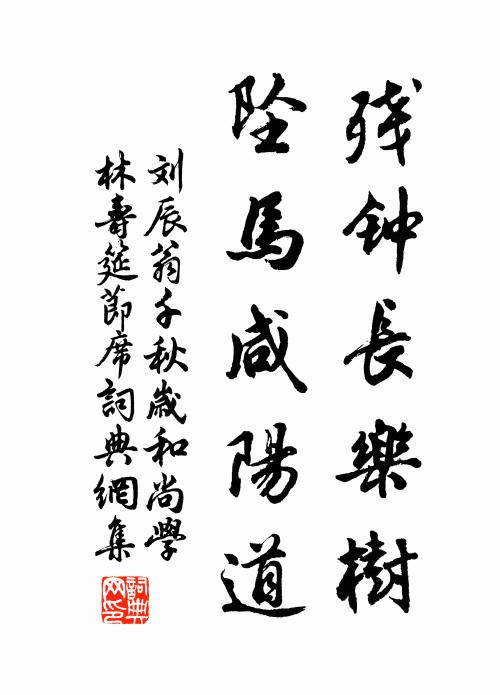 残钟長樂樹
坠馬咸陽道
刘辰翁千秋歲和尚學
林壽筵節席詞典網集
詞典网印